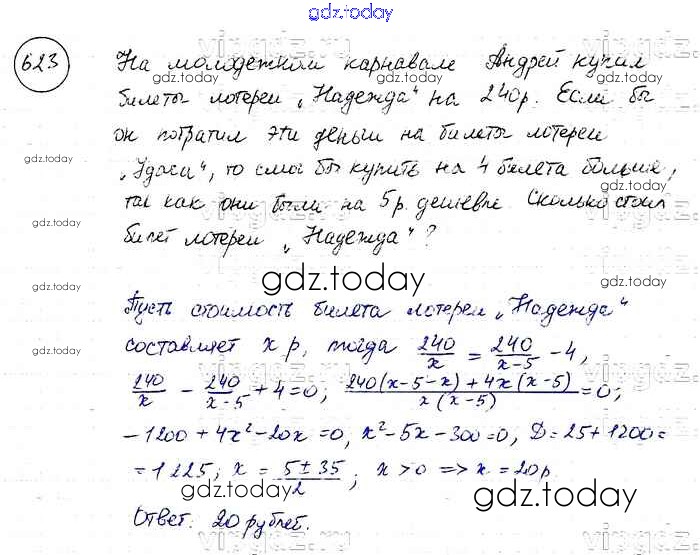 gdz.today
623
На молодежном карнавале Андрей купил
билеты лотереи „Надежда“ на 240р. Если бы
он потратил эти деньги на билеты лотереи
„Удача“, то смог бы купить на 4 билета больше,
так как они были на 5 р. дешевле. Сколько стоил
билет лотереи „Надежда“?
gdz.today
Пусть стоимость билета лотереи „Надежда“
составляет x р, тогда 240/x = 240/(x-5) - 4,
240/x - 240/(x-5) + 4 = 0; (240(x-5-x) + 4x(x-5))/(x(x-5)) = 0;
-1200 + 4x² - 20x = 0, x² - 5x - 300 = 0, D = 25 + 1200 =
= 1225; x = (5 ± 35)/2; x > 0 => x = 20р.
gdz.today
Ответ: 20 рублей.